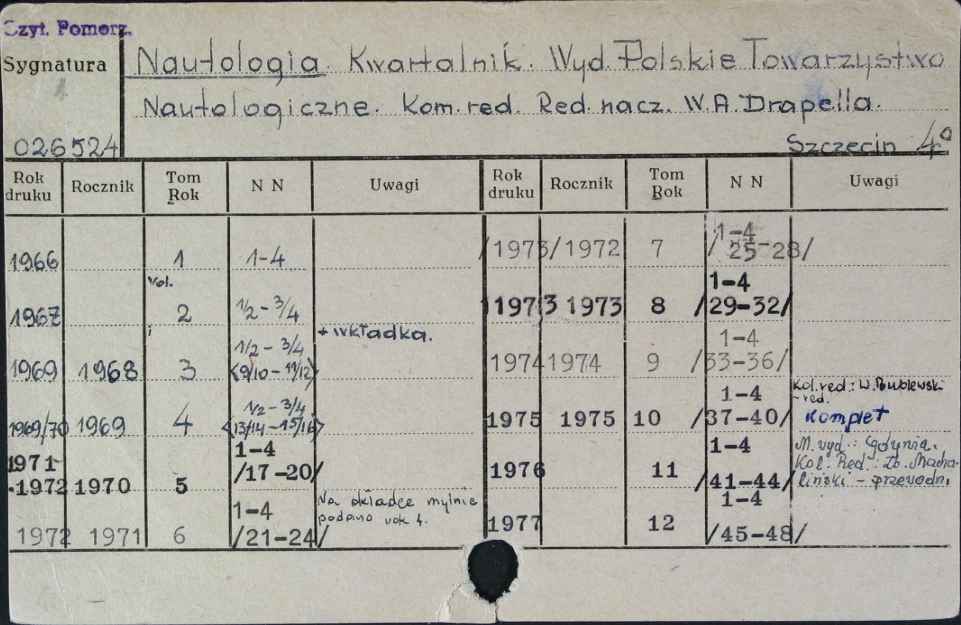 Czyt. Pomorz.
Sygnatura
Nautologia. Kwartalnik. Wyd. Polskie Towarzystwo
Nautologiczne. Kom. red. Red. nacz. W. A. Drapella.
026524
Szczecin 4°
Rok druku Rocznik Tom Rok N N Uwagi Rok druku Rocznik Tom Rok N N Uwagi
1966 1 1-4
vol.
1967 2 1/2 - 3/4
i + wkładka.
1969 1968 3 1/2 - 3/4 <9/10 - 11/12>
1969/70 1969 4 1/2 - 3/4 <13/14 - 15/16>
1971-1972 1970 5 1-4 /17-20/
1972 1971 6 1-4 /21-24/ Na okładce mylnie podano rok 4.
/1973/1972 7 1-4 /25-28/
1973 1973 8 1-4 /29-32/
1974 1974 9 1-4 /33-36/
1975 1975 10 1-4 /37-40/ Kol. red.: W. Bublewski - red. komplet
1976 11 1-4 /41-44/ M. wyd.: Gdynia. Kol. Red.: Zb. Machaliński - przewodn.
1977 12 1-4 /45-48/